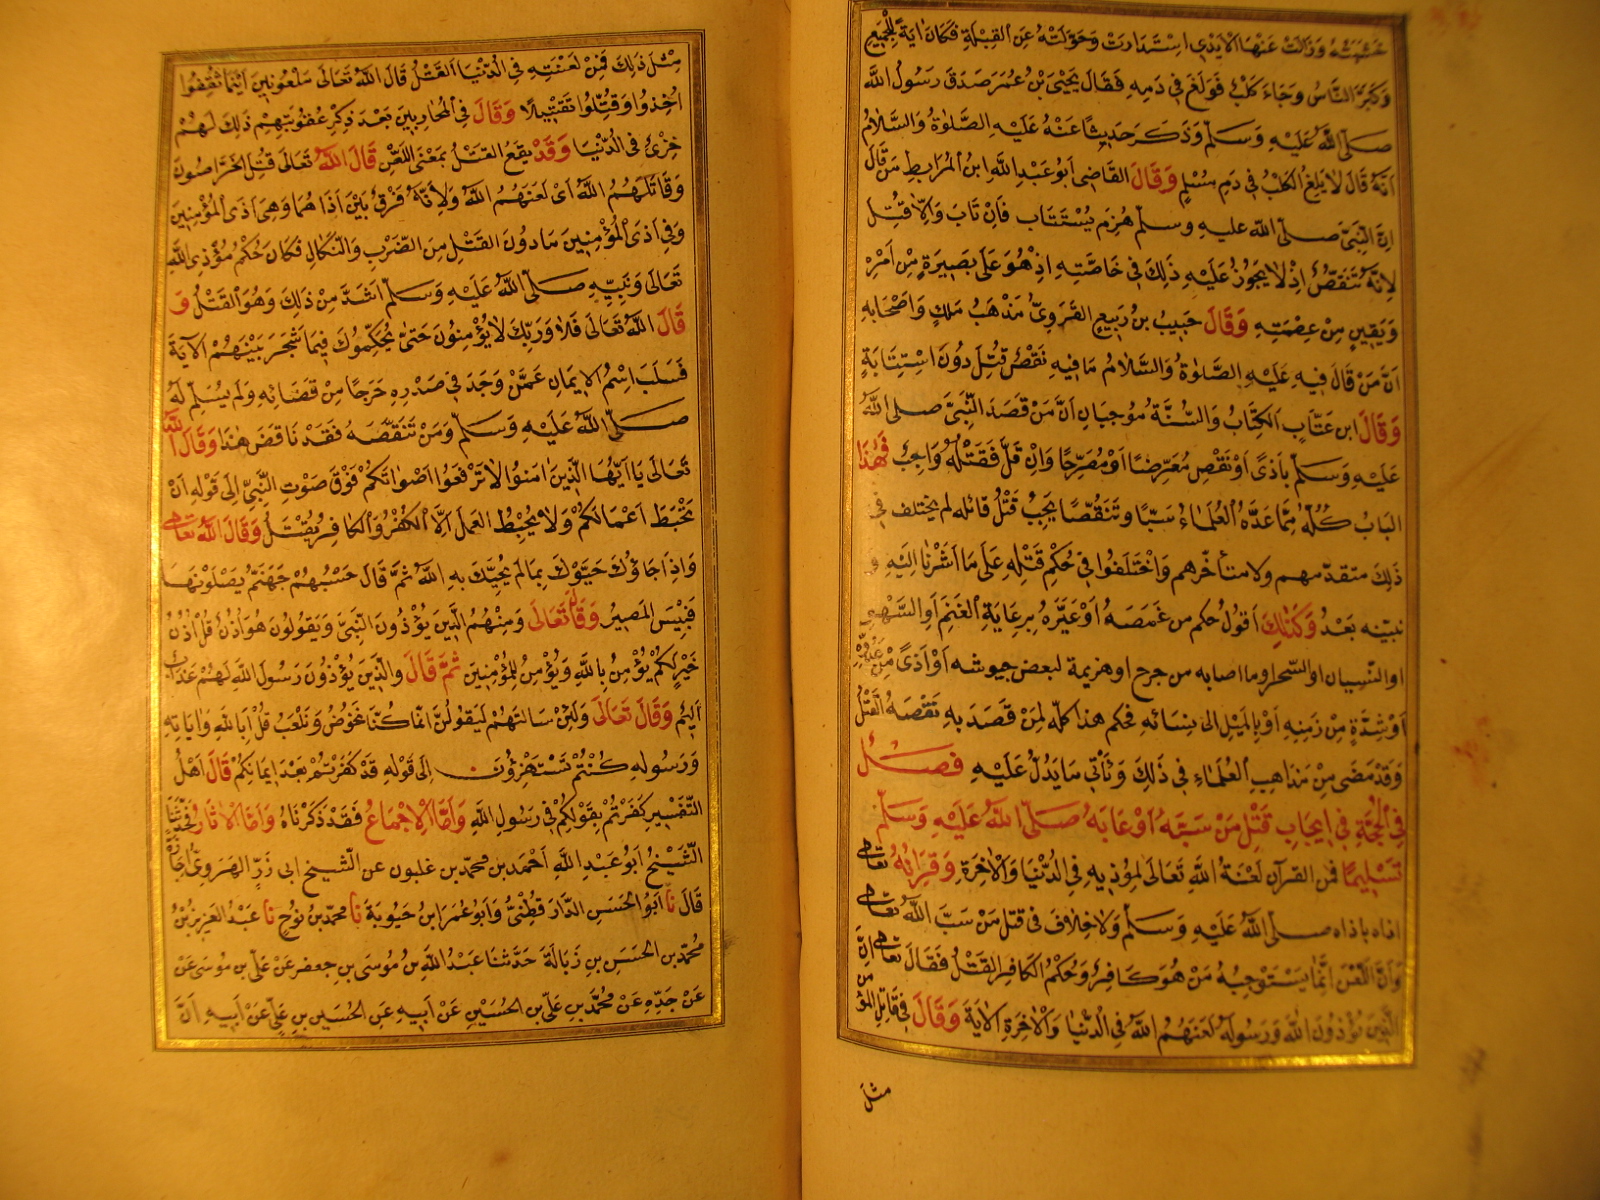 خشبته وزالت عنها الايدي استدارت وحولته عن القبلة فكان اية للجميع
وكبر الناس وجاء كلب فولغ في دمه فقال يحيى بن عمر صدق رسول الله
صلى الله عليه وسلم وذكر حديثا عنه عليه الصلوة والسلام
انه قال لا يلغ الكلب في دم مسلم وقال القاضي ابو عبد الله ابن المرابط من قال
ان النبي صلى الله عليه وسلم هزم يستتاب فان تاب والا قتل
لانه تنقص اذ لا يجوز عليه ذلك في خاصته اذ هو على بصيرة من امره
ويقين من عصمته وقال حبيب بن ربيع القروي مذهب ملك واصحابه
ان من قال فيه عليه الصلوة والسلام ما فيه نقص قتل دون استتابة
وقال ابن عتاب الكتاب والسنة موجبان ان من قصد النبي صلى الله
عليه وسلم باذى او نقص معرضا او مصرحا وان قل فقتله واجب فهذا
الباب كله مما عده العلماء سبا وتنقصا يجب قتل قائله لم يختلف في
ذلك متقدمهم ولا متأخرهم واختلفوا في حكم قتله على ما اشرنا اليه و
نبينه بعد وكذلك اقول حكم من غمصه او عيره برعاية الغنم او السهو
او النسيان او السحر وما اصابه من جرح او هزيمة لبعض جيوشه او اذى من عدوه
او شدة من زمنه او بالميل الى نسائه فحكم هذا كله لمن قصد به نقصه القتل
وقد مضى من مذاهب العلماء في ذلك ويأتي ما يدل عليه فصل
في الحجة في ايجاب قتل من سبه او عابه صلى الله عليه وسلم
تسليما فمن القرآن لعنة الله تعالى لمؤذيه في الدنيا والاخرة وقرانه تعالى
اذاه باذاه صلى الله عليه وسلم ولا خلاف في قتل من سب الله تعالى
وان اللعن انما يستوجبه من هو كافر وحكم الكافر القتل فقال تعالى ان
الذين يؤذون الله ورسوله لعنهم الله في الدنيا والاخرة الاية وقال في قاتل المؤمن
مثل
مثل ذلك فمن لعنته في الدنيا القتل قال الله تعالى ملعونين اينما ثقفوا
اخذوا وقتلوا تقتيلا وقال في المحاربين بعد ذكر عقوبتهم ذلك لهم
خزي في الدنيا وقد يقع القتل بمعنى اللعن قال الله تعالى قتل الخراصون
وقاتلهم الله اى لعنهم الله ولانه فرق بين اذاهما وهى اذى المؤمنين
وفي اذى المؤمنين ما دون القتل من الضرب والنكال فكان حكم مؤذي الله
تعالى ونبيه صلى الله عليه وسلم اشد من ذلك وهو القتل و
قال الله تعالى فلا وربك لا يؤمنون حتى يحكموك فيما شجر بينهم الآية
فسلب اسم الايمان عمن وجد في صدره حرجا من قضائه ولم يسلم له
صلى الله عليه وسلم ومن تنقصه فقد ناقض هذا وقال الله
تعالى يا ايها الذين امنوا لا ترفعوا اصواتكم فوق صوت النبي الى قوله ان
تحبط اعمالكم ولا يحبط العمل الا الكفر والكافر يقتل وقال الله تعالى
واذا جاؤك حيوك بما لم يحيك به الله ثم قال حسبهم جهنم يصلونها
فبيس المصير وقال تعالى ومنهم الذين يؤذون النبي ويقولون هو اذن قل اذن
خير لكم يؤمن بالله ويؤمن للمؤمنين ثم قال والذين يؤذون رسول الله لهم عذاب
اليم وقال تعالى ولئن سالتهم ليقولن انما كنا نخوض ونلعب قل ابالله واياته
ورسوله كنتم تستهزؤن الى قوله قد كفرتم بعد ايمانكم قال اهل
التفسير كفرتم بقولكم في رسول الله واما الاجماع فقد ذكرناه واما الاثار فحدثنا
الشيخ ابو عبد الله احمد بن محمد بن غلبون عن الشيخ ابى ذر الهروي اجازة
قال نا ابو الحسن الدارقطني وابو عمر ابن حيوية نا محمد بن نوح نا عبد العزيز بن
محمد بن الحسن بن زبالة حدثنا عبد الله بن موسى بن جعفر عن على بن موسى عن
عن جده عن محمد بن على بن الحسين عن ابيه عن الحسين بن على عن ابيه ان